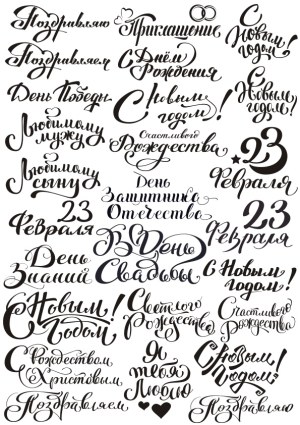 Поздравляю
Приглашение
С
Новым
годом!
Поздравляем
С Днём
Рождения
С
Новым
годом!
День Победы
С Новым
годом!
Любимому
мужу
Счастливого
Рождества
23
Февраля
Любимому
сыну
День
Защитника
Отечества
23
Февраля
23
Февраля
День
Знаний
В День
Свадьбы
С Новым
годом!
С Новым
Годом!
Светлого
Рождества
Счастливого
Рождества
С Рождеством
Христовым
Я
тебя
Люблю
С Новым
Годом!
Поздравляем
Поздравляю